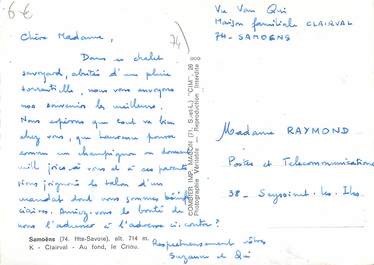 6 €
Vu Van Qui
Maison familiale CLAIRVAL
74 - SAMOENS
74
Chère Madame,
Dans ce chalet
savoyard, abrités d'une pluie
torrentielle, nous vous envoyons
nos souvenirs les meilleurs.
Nous espérons que tout va bien
chez vous, que Laurence pousse
comme un champignon en donnant
mille joies à vous et à ses parents.
Nous joignons le talon d'un
mandat dont vous sommes bénéfi-
ciaires. Auriez-vous la bonté de
nous l'adresser à l'adresse ci-contre?
Respectueusement vôtre
Suzanne et Qui
Madame RAYMOND
Postes et Télécommunications
38 - Seyssinet-les-Iles
COMBIER IMP. MACON (71, S.-et-L.) "CIM" 26 909
Photographie Véritable - Reproduction Interdite
Samoëns (74. Hte-Savoie), alt. 714 m.
K - Clairval - Au fond, le Criou.